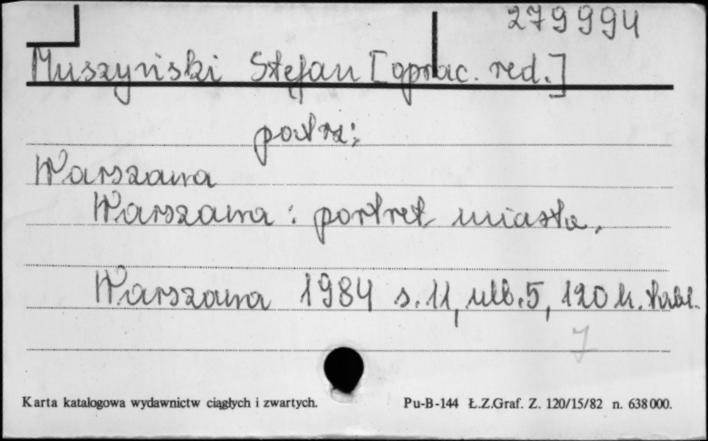 279994
Muszyński Stefan [oprac. red.]
patrz:
Warszawa
Warszawa: portret miasta.
Warszawa 1984 s. 11, nlb. 5, 120 k. tabl.
J
Karta katalogowa wydawnictw ciągłych i zwartych. Pu-B-144 Ł.Z.Graf. Z. 120/15/82 n. 638000.